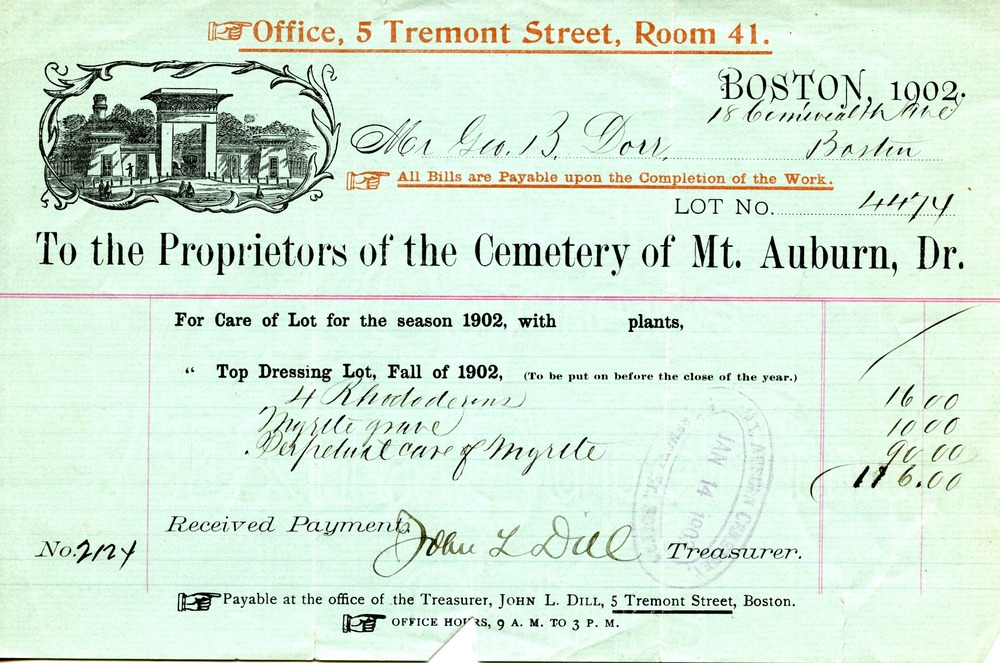 Office, 5 Tremont Street, Room 41.
BOSTON, 1902.
18 Comwealth Ave
Mr Geo. B. Dorr, Boston
All Bills are Payable upon the Completion of the Work.
LOT No. 4474
To the Proprietors of the Cemetery of Mt. Auburn, Dr.
For Care of Lot for the season 1902, with plants,
“ Top Dressing Lot, Fall of 1902, (To be put on before the close of the year.)
4 Rhododerns 16 00
Myrtle grave 10 00
Perpetual care of Myrtle 90 00
116.00
MT. AUBURN
JAN 14
Received Payment, John L Dill Treasurer.
No. 2124
Payable at the office of the Treasurer, JOHN L. DILL, 5 Tremont Street, Boston.
OFFICE HOURS, 9 A. M. TO 3 P. M.